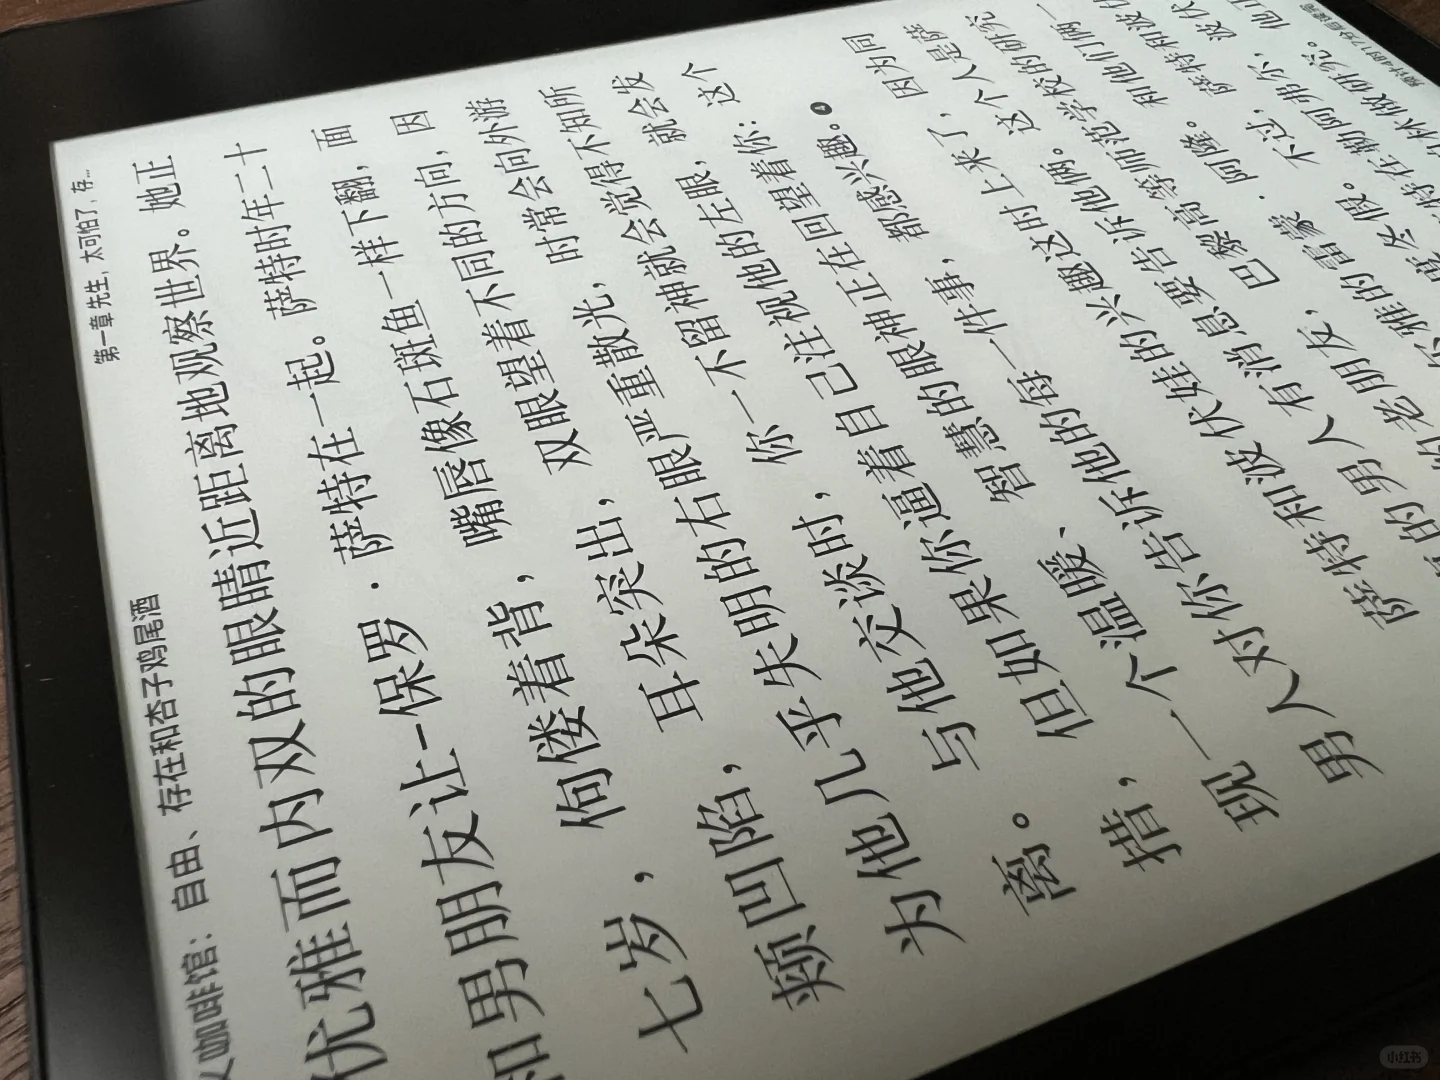 义咖啡馆：自由、存在和杏子鸡尾酒
第一章 先生，太可怕了，存...
优雅而内双的眼睛近距离地观察世界。她正
和男朋友让-保罗·萨特在一起。萨特时年二十
七岁，佝偻着背，嘴唇像石斑鱼一样下翻，面
颊凹陷，耳朵突出，双眼望着不同的方向，因
为他几乎失明的右眼严重散光，时常会向外游
离。与他交谈时，你一不留神就会觉得不知所
措，但如果你逼着自己注视他的左眼，就会发
现一个温暖、智慧的眼神正在回望着你：这个
男人对你告诉他的每一件事，都感兴趣。4
萨特和波伏娃的兴趣这时上来了，因为同
的男人有消息要告诉他俩。这个人是萨
的老朋友，巴黎高等师范学校的研究
雅的雷蒙·阿隆。和他们俩一
度冬假。不过，萨特和波伏
林做研究。
小红书